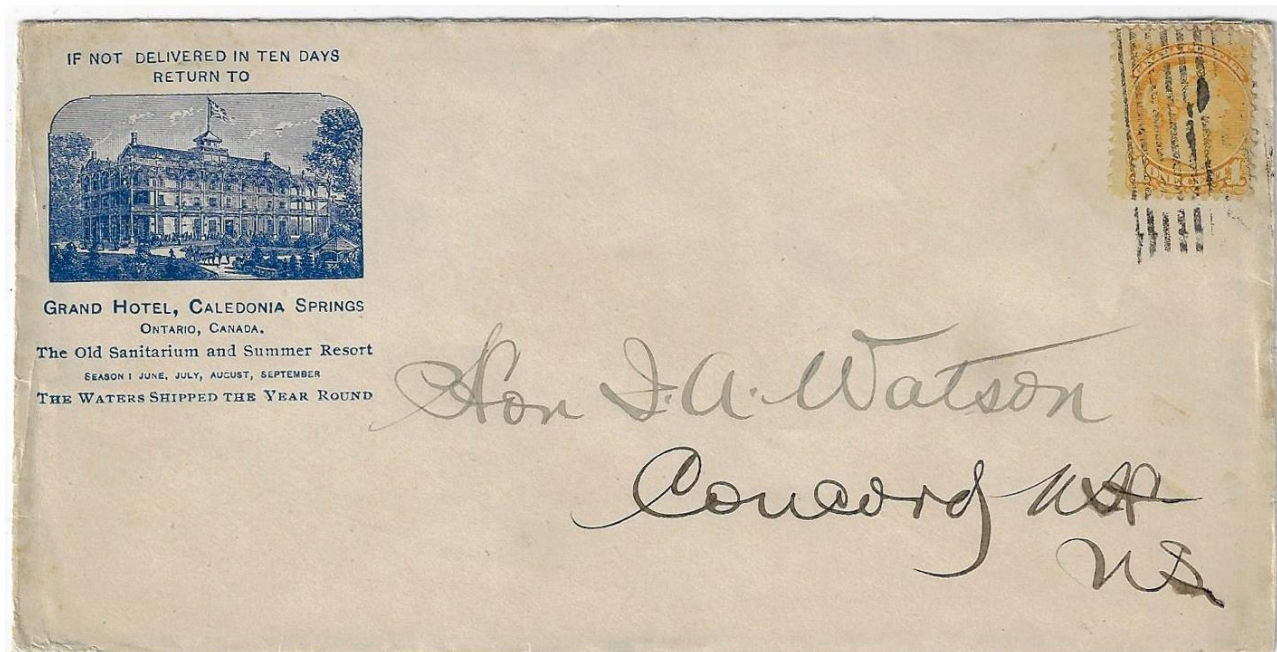 IF NOT DELIVERED IN TEN DAYS
RETURN TO
GRAND HOTEL, CALEDONIA SPRINGS
ONTARIO, CANADA.
The Old Sanitarium and Summer Resort
SEASON: JUNE, JULY, AUGUST, SEPTEMBER
THE WATERS SHIPPED THE YEAR ROUND
Hon I. A. Watson
Concord NH
US